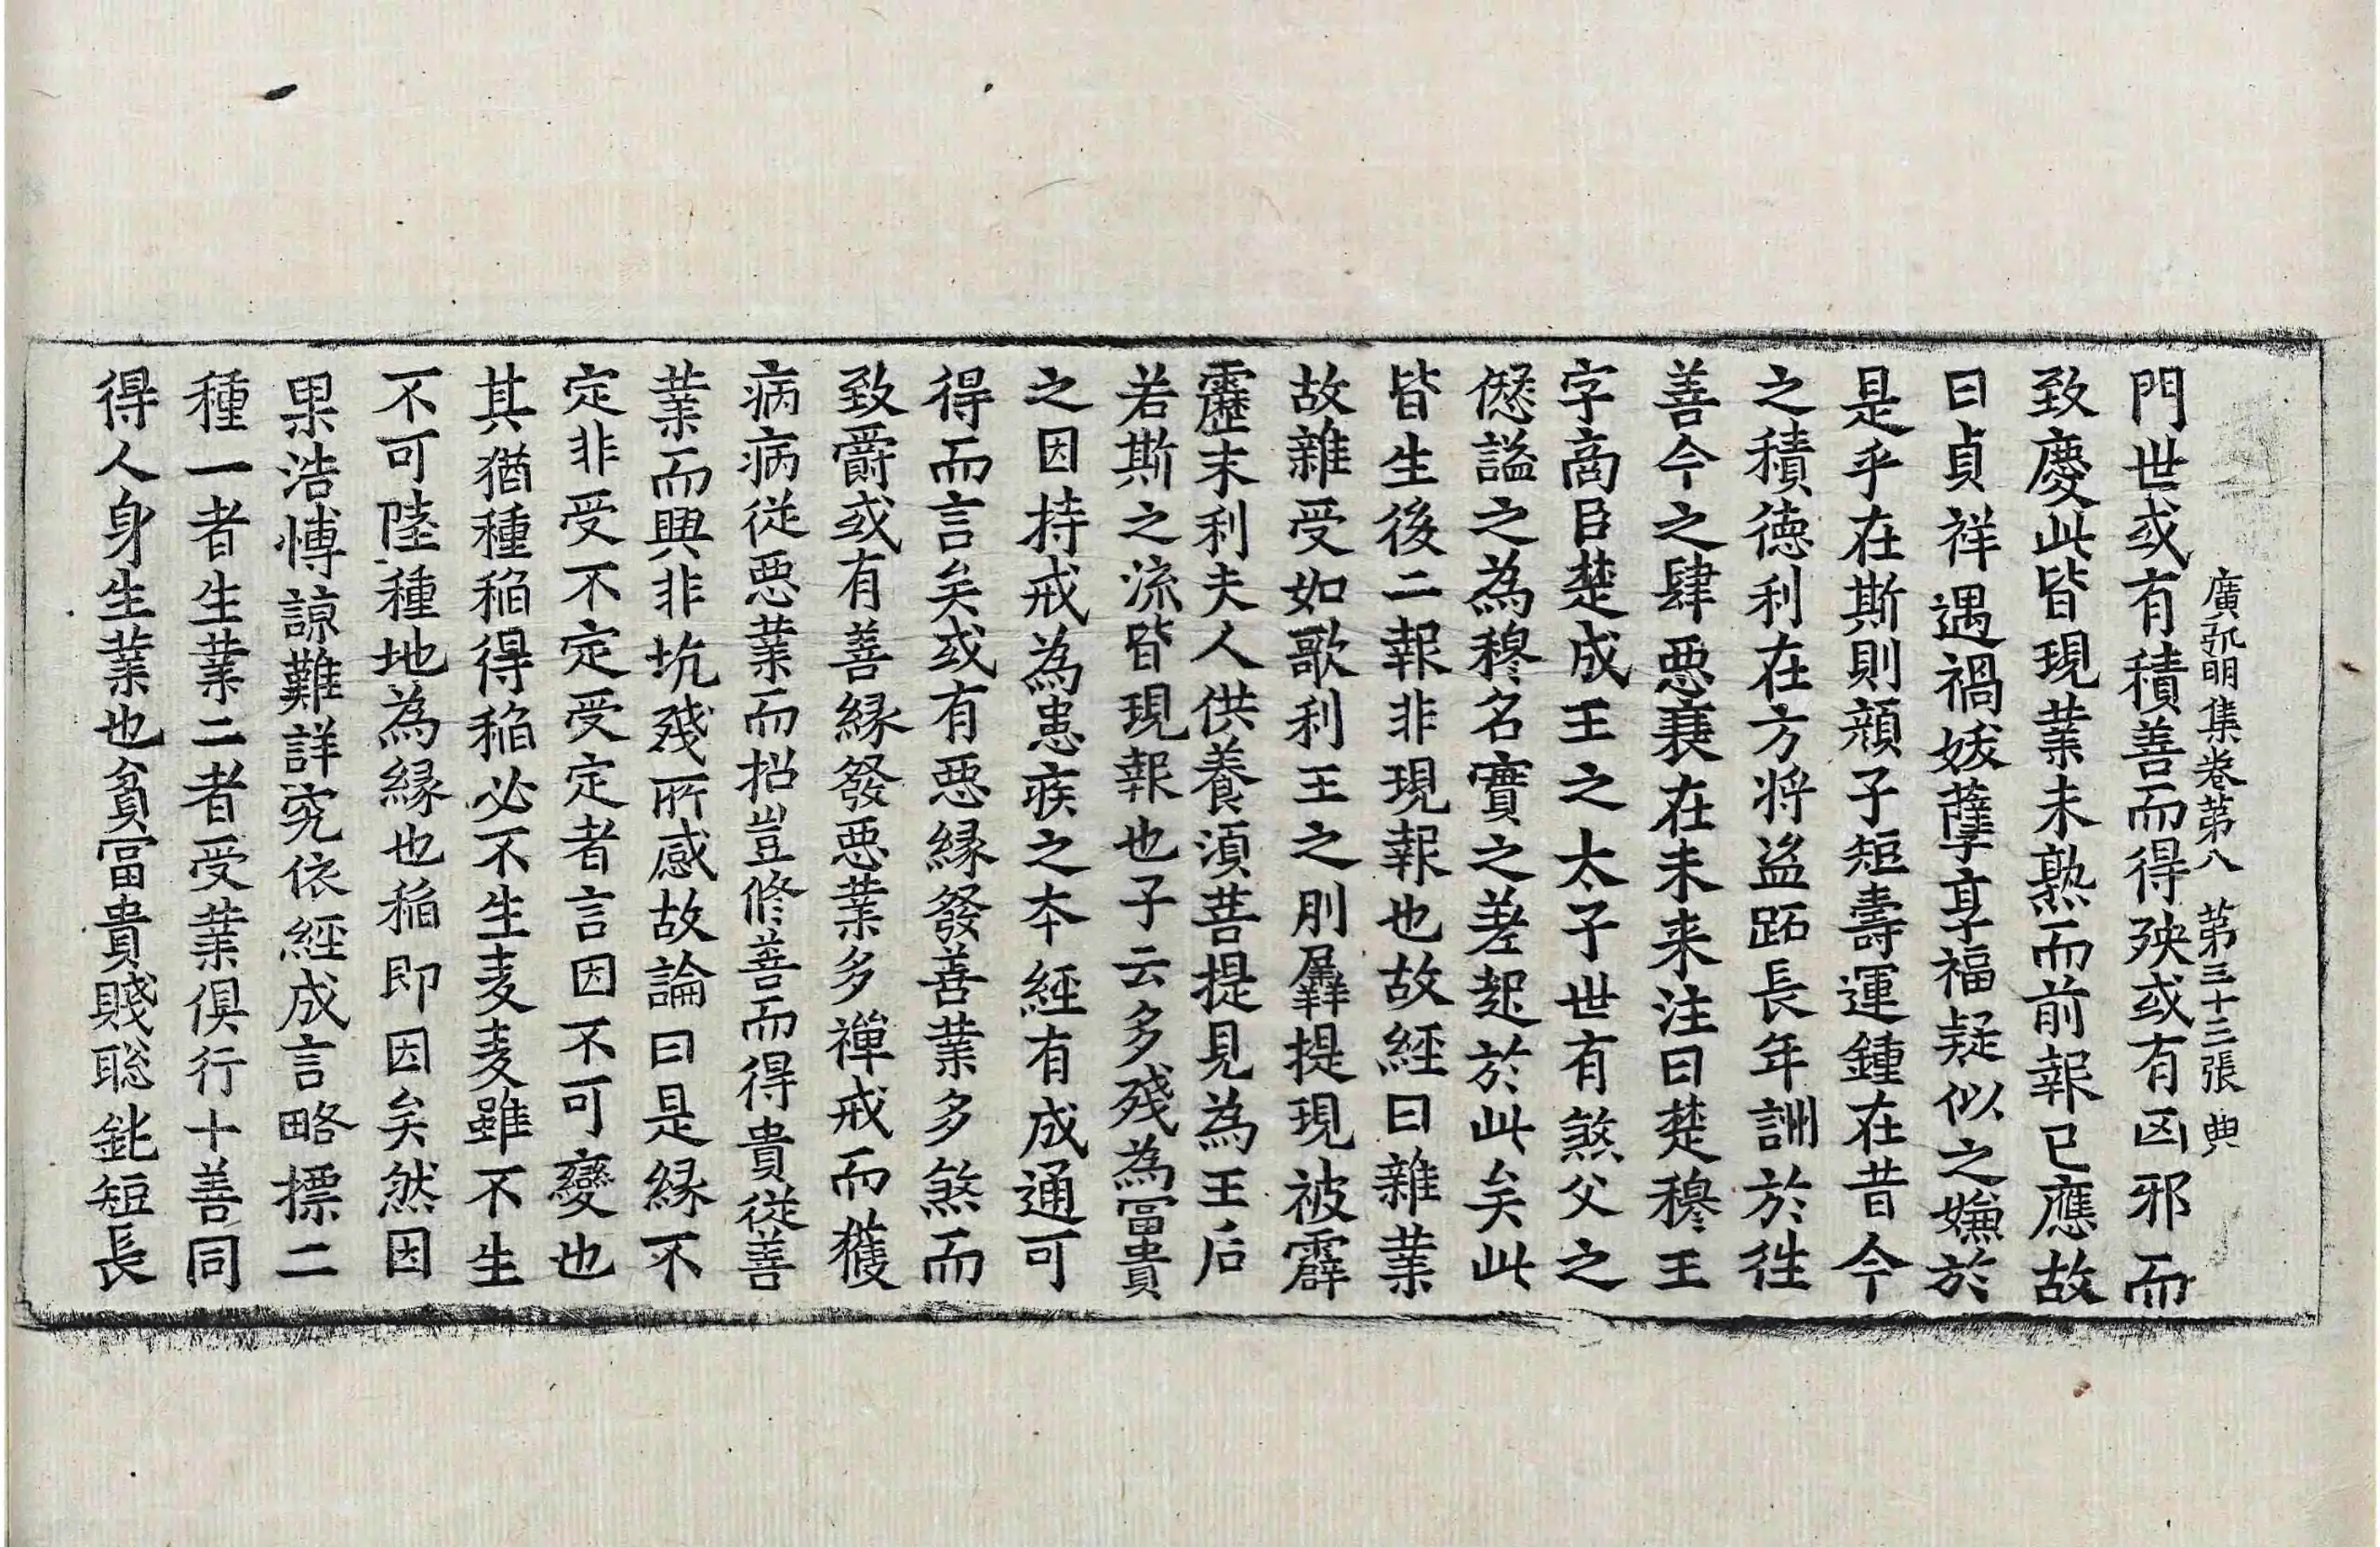 廣弘明集卷第八　第三十三張　典
門世或有積善而得殃或有凶邪而
致慶此皆現業未熟而前報已應故
曰貞祥遇禍妖孽享福疑似之嫌於
是乎在斯則顏子短壽運鍾在昔今
之積德利在方將盜跖長年詶於往
善今之肆惡衰在未来注曰楚穆王
字商臣楚成王之太子世有煞父之
愆謚之為穆名實之差起於此矣此
皆生後二報非現報也故經曰雜業
故雜受如歌利王之刖羼提現被霹
靂末利夫人供養湏菩提見為王后
若斯之流皆現報也子云多殘為冨貴
之因持戒為患疾之夲經有成通可
得而言矣或有惡緣發善業多煞而
致爵或有善緣發惡業多禪戒而獲
病病從惡業而招豈修善而得貴從善
業而興非坑殘所感故論曰是緣不
定非受不定受定者言因不可變也
其猶種稻得稻必不生麦麦雖不生
不可陸種地為緣也稻即因矣然因
果浩博諒難詳究依經成言略摽二
種一者生業二者受業俱行十善同
得人身生業也貧冨貴賤聡銚短長